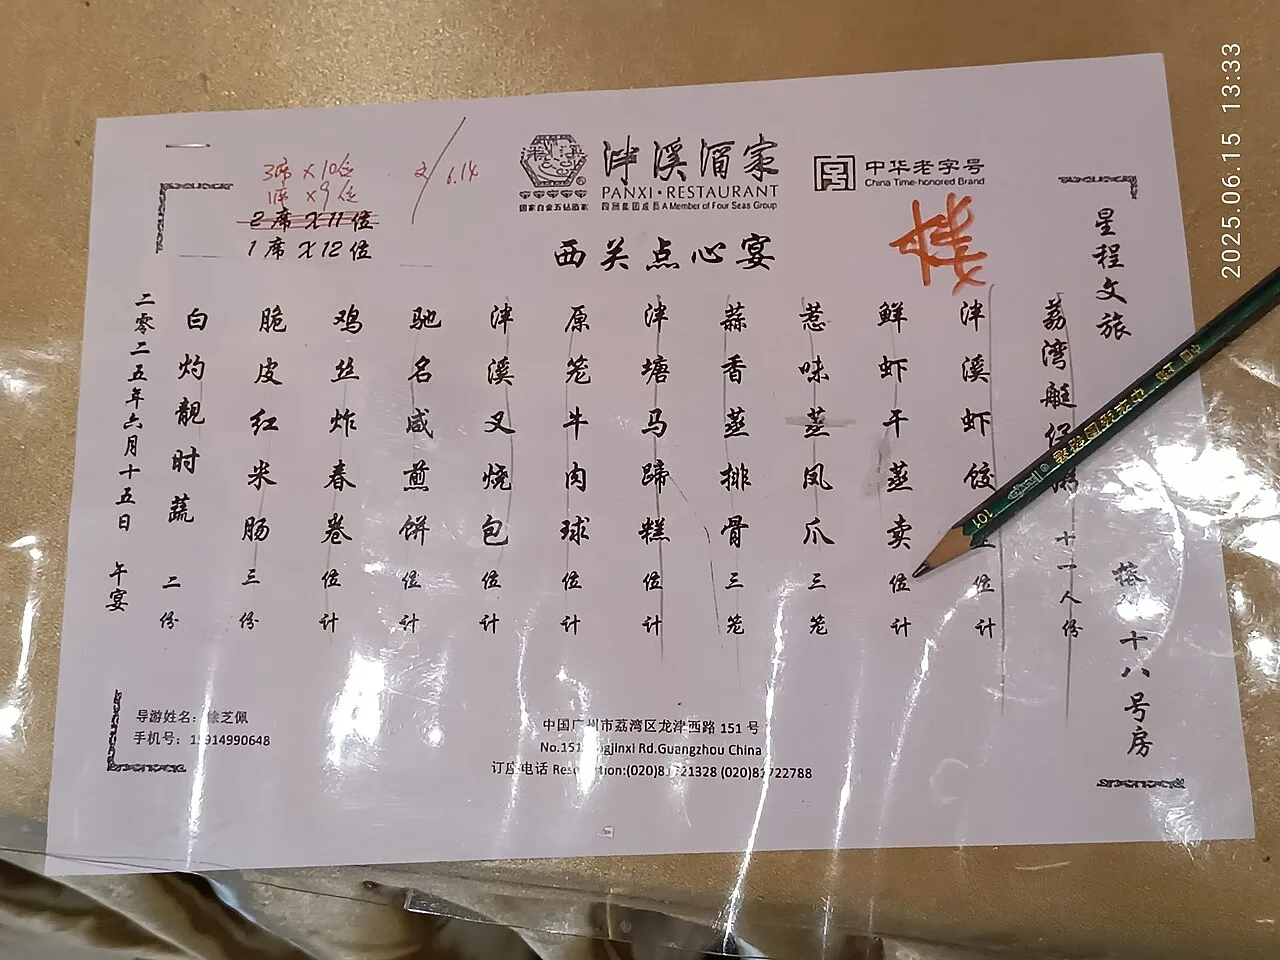 2025.06.15 13:33
3席×10位
1席×9位
2席×11位
1席×12位
6.14
泮溪酒家
PANXI·RESTAURANT
国家白金五钻酒家
四海集团成员 A Member of Four Seas Group
中华老字号
China Time-honored Brand
西关点心宴
星程文旅
十八号房
荔湾艇仔 十一人份
泮溪虾饺 位计
鲜虾干蒸卖 位计
惹味蒸凤爪 三笼
蒜香蒸排骨 三笼
泮塘马蹄糕 位计
原笼牛肉球 位计
泮溪叉烧包 位计
驰名咸煎饼 位计
鸡丝炸春卷 位计
脆皮红米肠 三份
白灼靓时蔬 二份
二零二五年六月十五日 午宴
导游姓名: 芝佩
手机号: 914990648
中国广州市荔湾区龙津西路 151 号
No.151 Rd.Guangzhou China
订座电话 (020)81722788
中国 中华牌绘图铅笔 ® 101